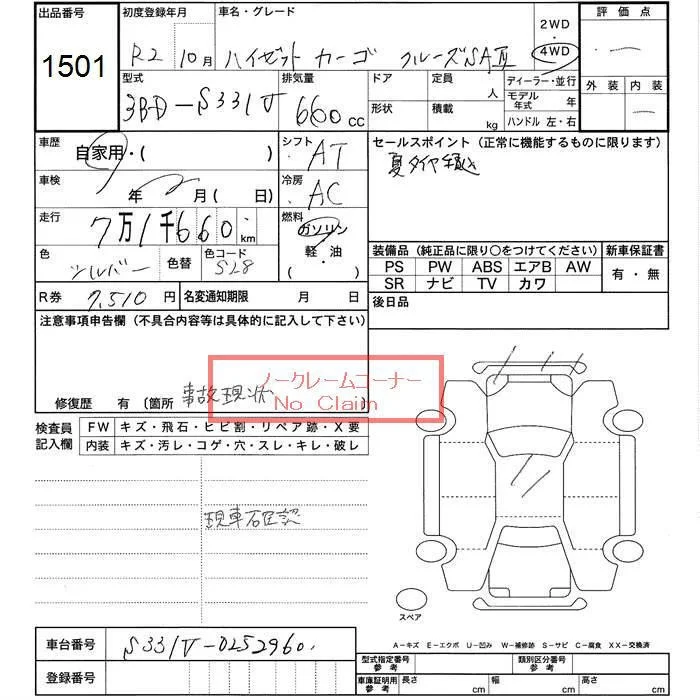 出品番号 初度登録年月 車名・グレード 2WD 評価点
1501 R2 10月 ハイゼット カーゴ クルーズSAⅢ 4WD
型式 排気量 ドア 定員 人 ディーラー・並行 外装 内装
3BD-S331V 660cc 形状 積載 kg モデル年式 年
ハンドル 左・右
車歴 自家用・( ) シフト AT セールスポイント(正常に機能するものに限ります)
夏タイヤ積込
車検 年 月 ( 日) 冷房 AC
走行 7万1千660km 燃料 ガソリン
軽・油
( ・ )
色 シルバー 色替 色コード S28
装備品(純正品に限り〇をつけてください) 新車保証書
PS PW ABS エアB AW 有・無
SR ナビ TV カワ
R券 7,510円 名変通知期限 月 日 後日品
注意事項申告欄(不具合内容等は具体的に記入して下さい)
ノークレームコーナー
No Claim
修復歴 有 〔箇所 事故現状 〕
検査員記入欄 FW キズ・飛石・ヒビ割・リペア跡・X要
内装 キズ・汚レ・コゲ・穴・スレ・キレ・破レ
現車確認
スペア
A-キズ E-エクボ U-凹み W-補修跡 S-サビ C-腐食 XX-交換済
車台番号 S331V-0252960
登録番号
型式指定番号 参考 類別区分番号 参考
車庫証明用 参考 長さ cm 幅 cm 高さ cm